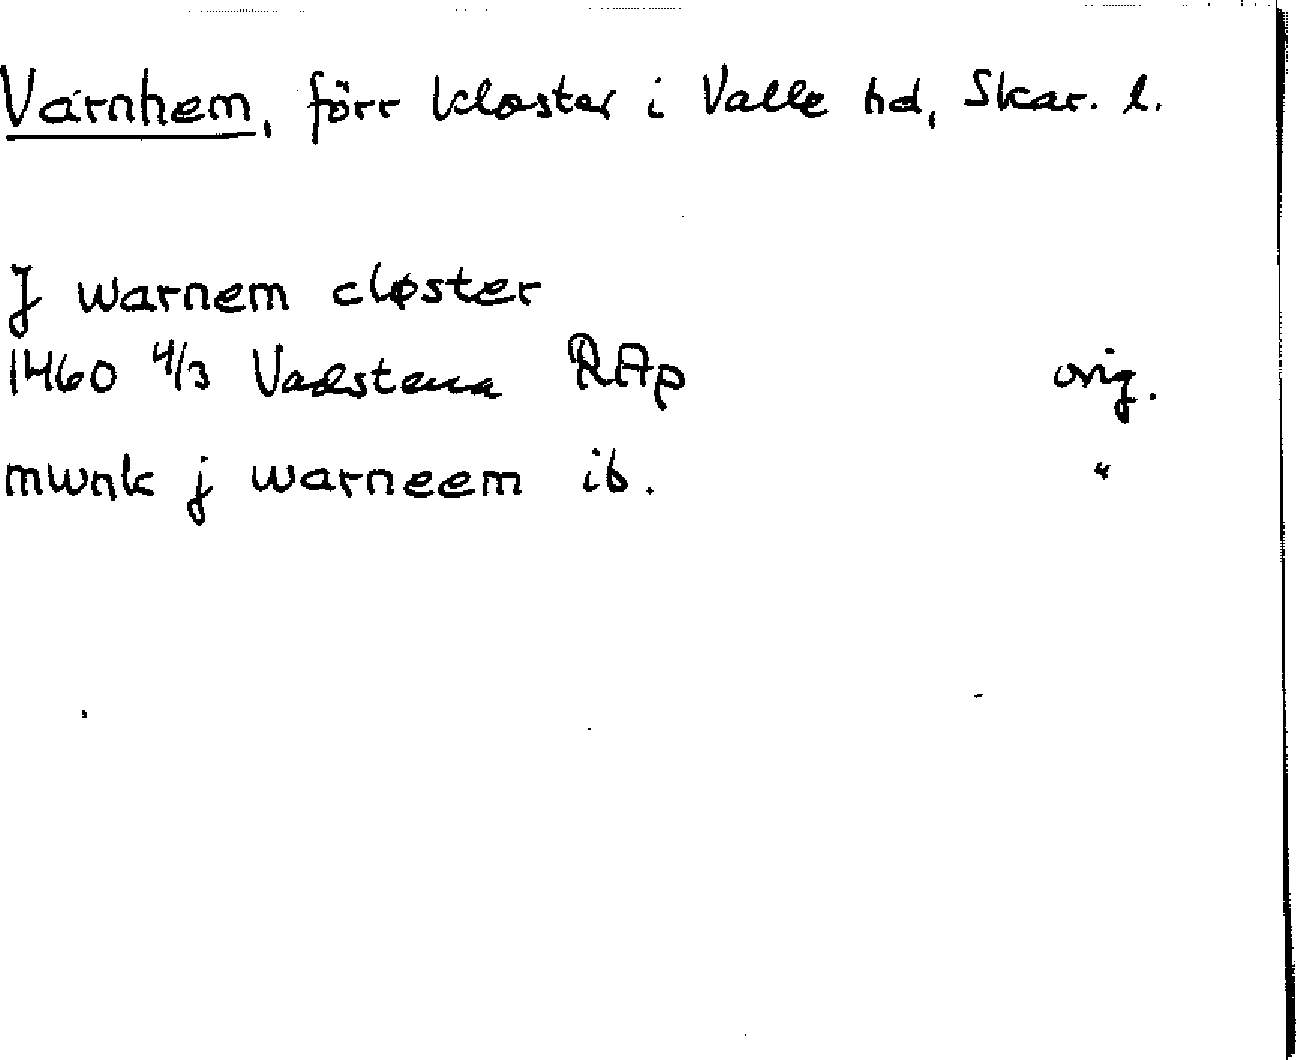 Varnhem, förr kloster i Valle hd, Skar. l.
J warnem cløster
1460 4/3 Vadstena RAp orig.
mwnk j warneem ib. "